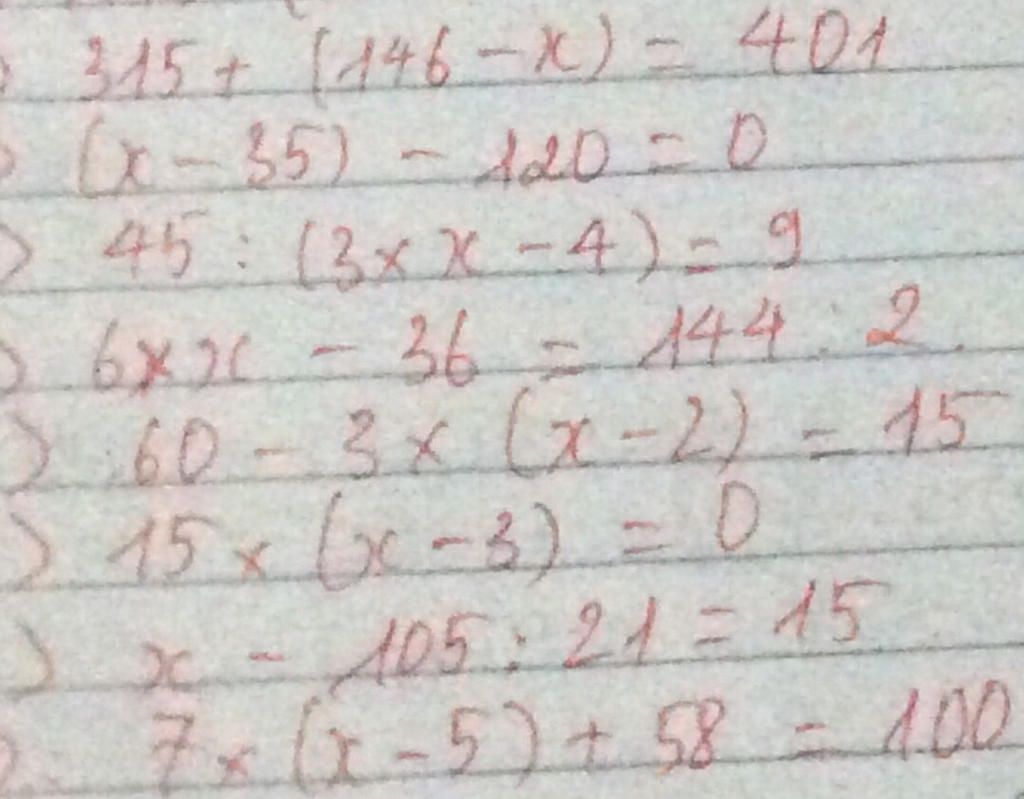 ) 315 + (146 - x) = 401
) (x - 35) - 120 = 0
) 45 : (3 × x - 4) = 9
) 6 × x - 36 = 144 : 2
) 60 - 3 × (x - 2) = 15
) 15 × (x - 3) = 0
) x - 105 : 21 = 15
) 7 × (x - 5) + 58 = 100